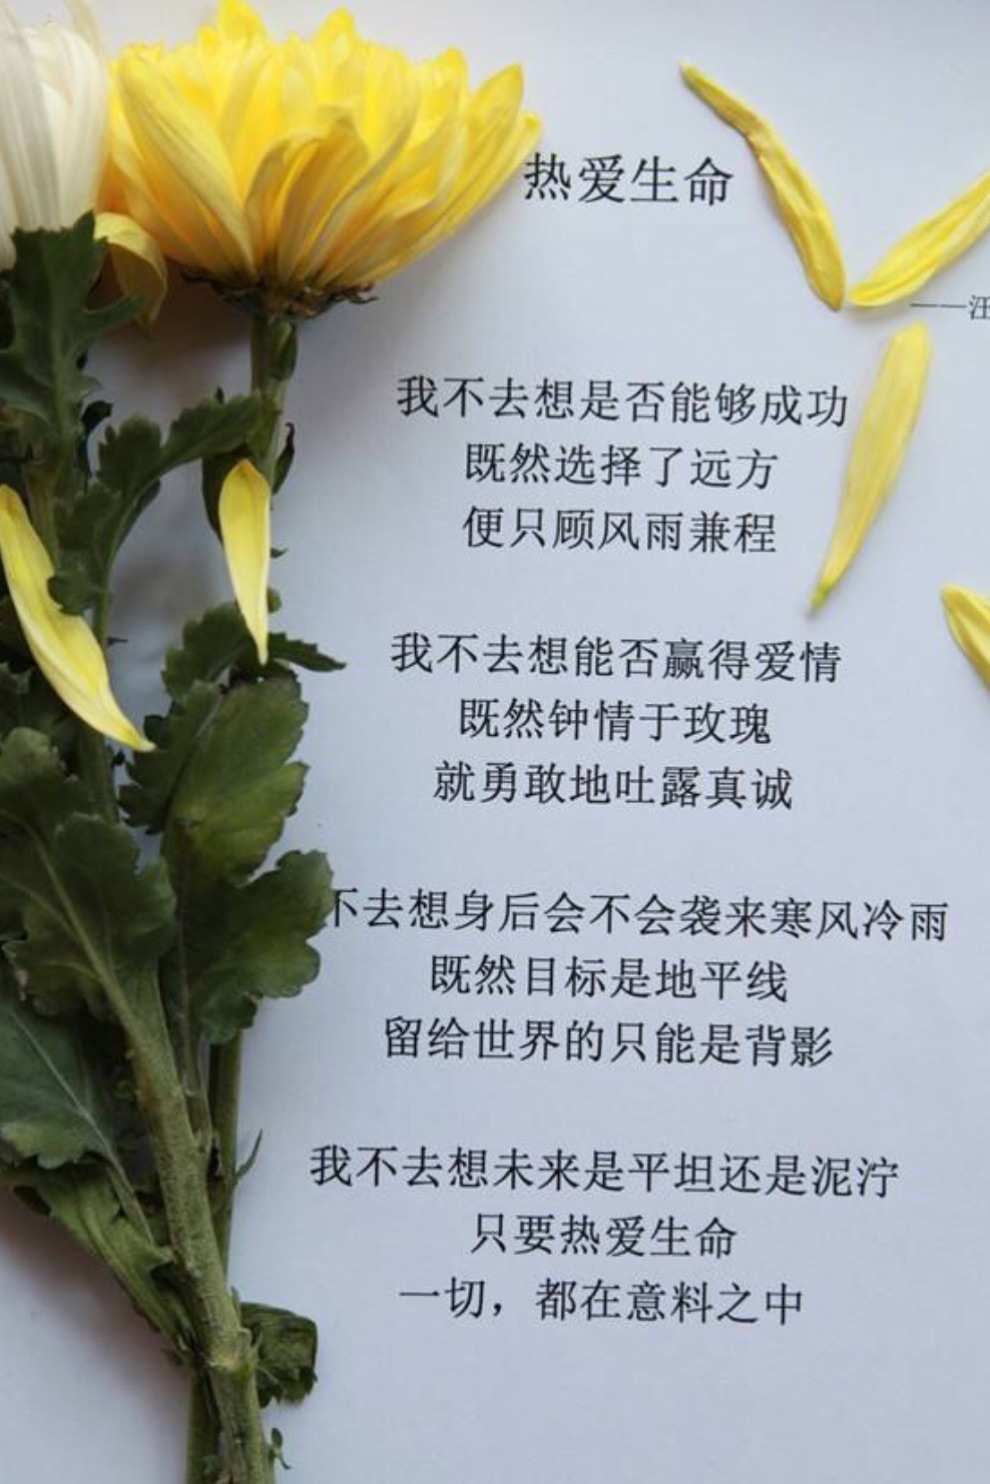 热爱生命
——汪
我不去想是否能够成功
既然选择了远方
便只顾风雨兼程
我不去想能否赢得爱情
既然钟情于玫瑰
就勇敢地吐露真诚
不去想身后会不会袭来寒风冷雨
既然目标是地平线
留给世界的只能是背影
我不去想未来是平坦还是泥泞
只要热爱生命
一切，都在意料之中